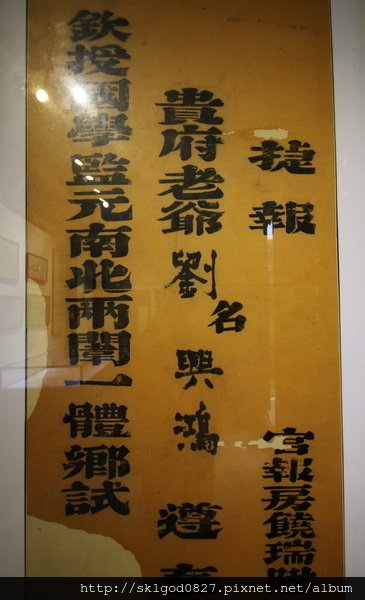 捷報
貴府老爺劉名興鴻遵
欽授國學監元南北兩闈一體鄉試
官報房饒瑞
http://sklgod0827.pixnet.net/album